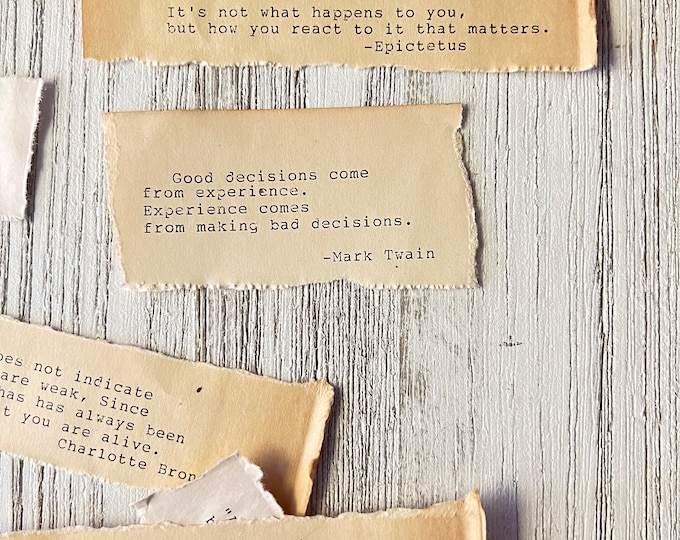 It's not what happens to you,
but how you react to it that matters.
-Epictetus
Good decisions come
from experience.
Experience comes
from making bad decisions.
-Mark Twain
not indicate
are weak, Since
has has always been
you are alive.
Charlotte Bron